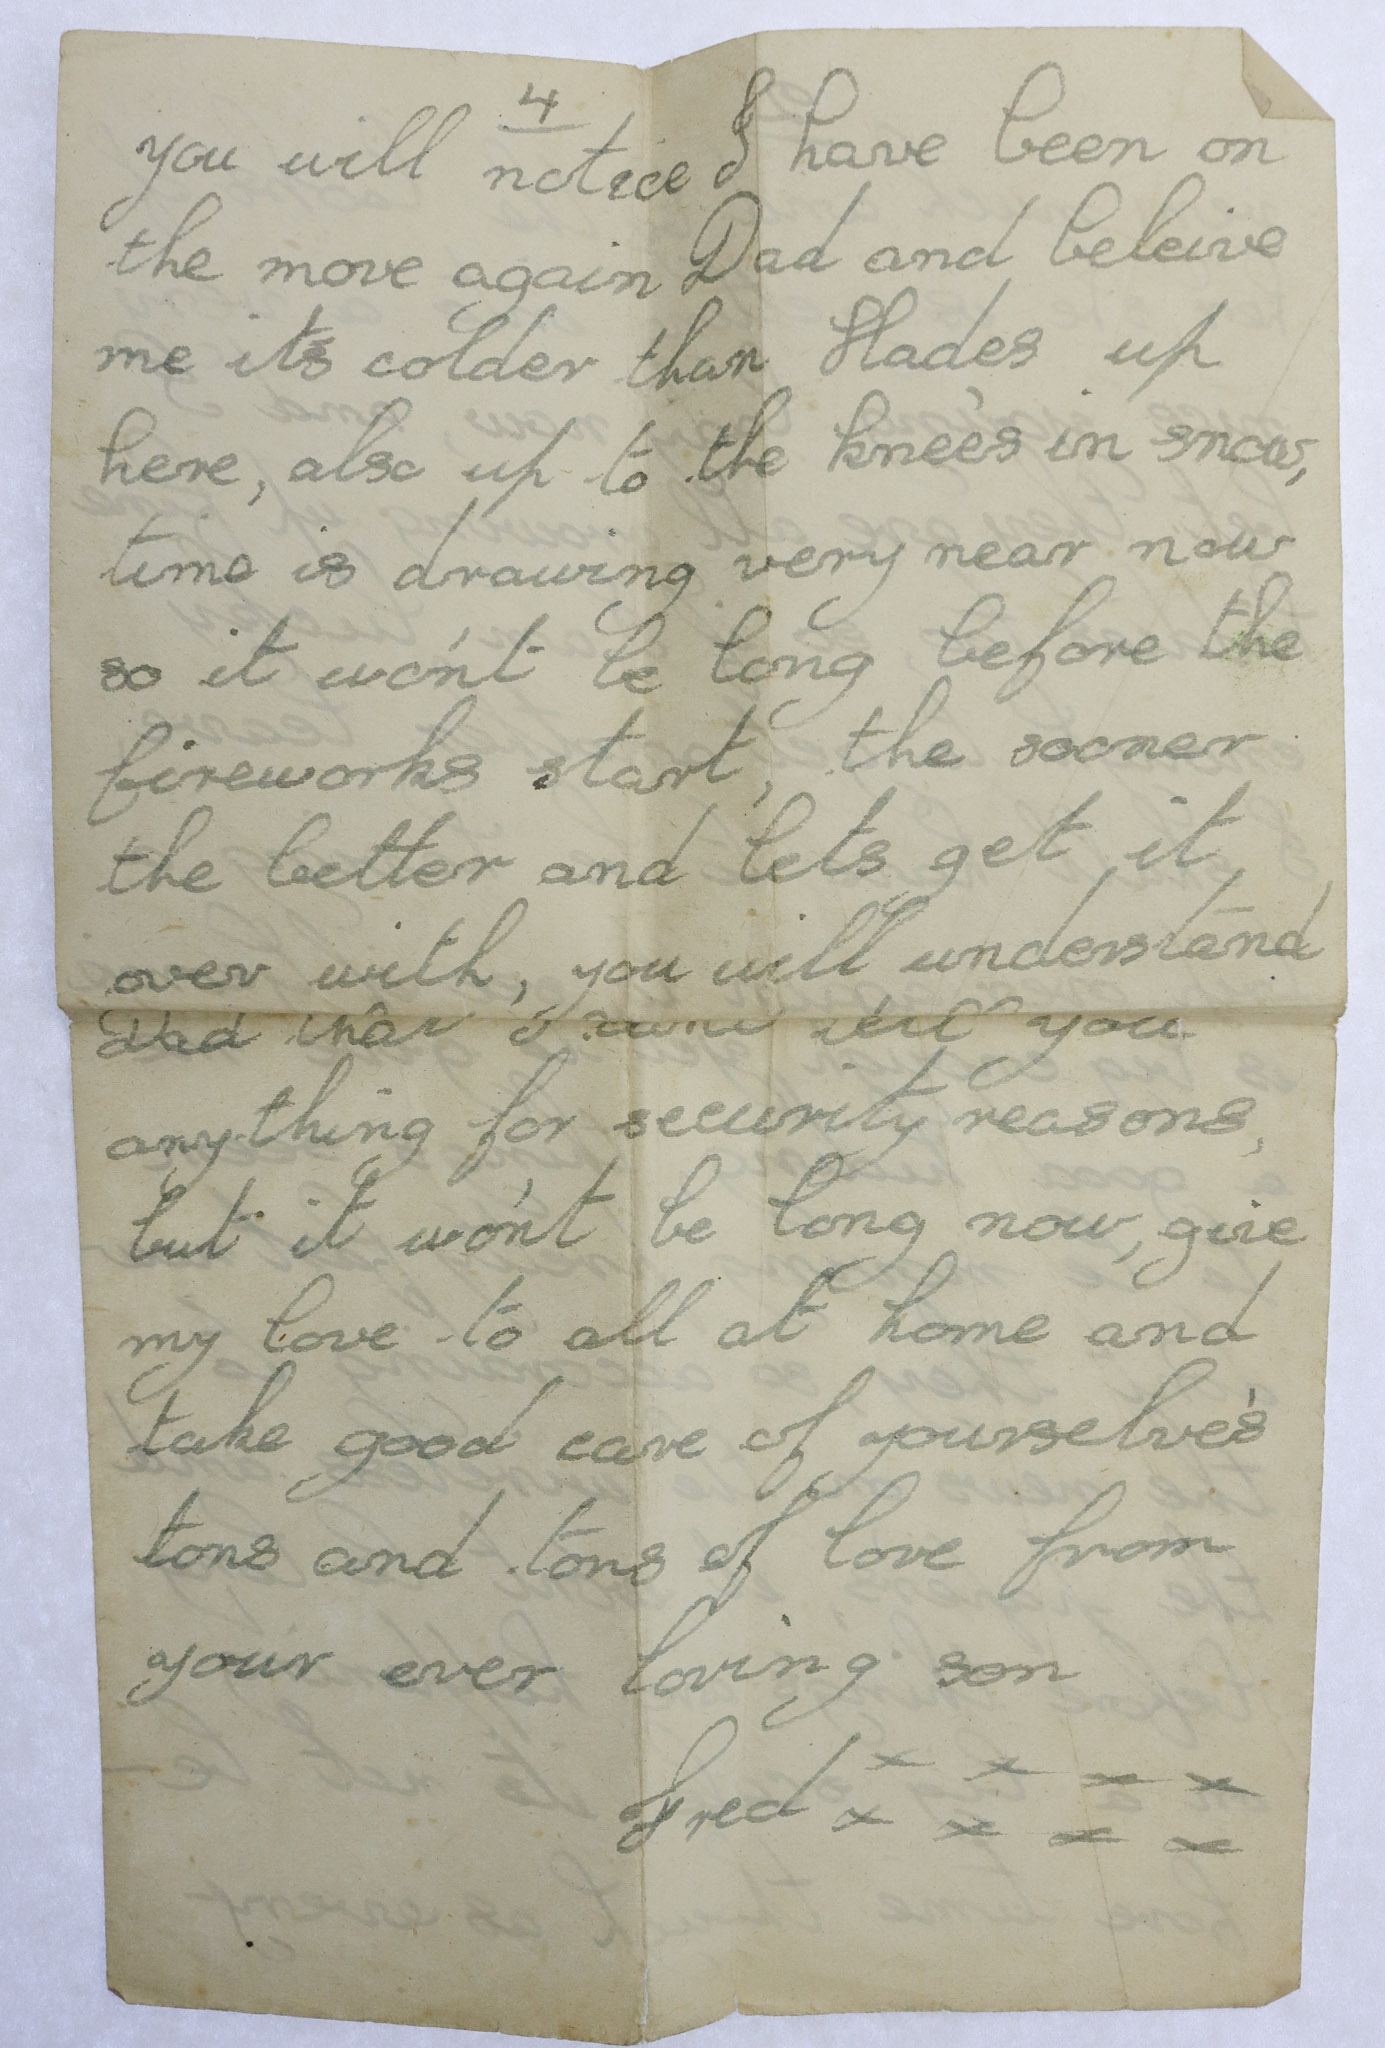 4
you will notice I have been on
the move again Dad and beleive
me it's colder than Hades up
here, also up to the knee's in snow,
time is drawing very near now
so it wo'nt be long before the
fireworks start, the sooner
the better and lets get it
over with, you will understand
Dad that I cant tell you
anything for security reasons,
but it wo'nt be long now, give
my love to all at home and
take good care of yourselve's
tons and tons of love from
your ever loving son
Fred x x x x
x x x x